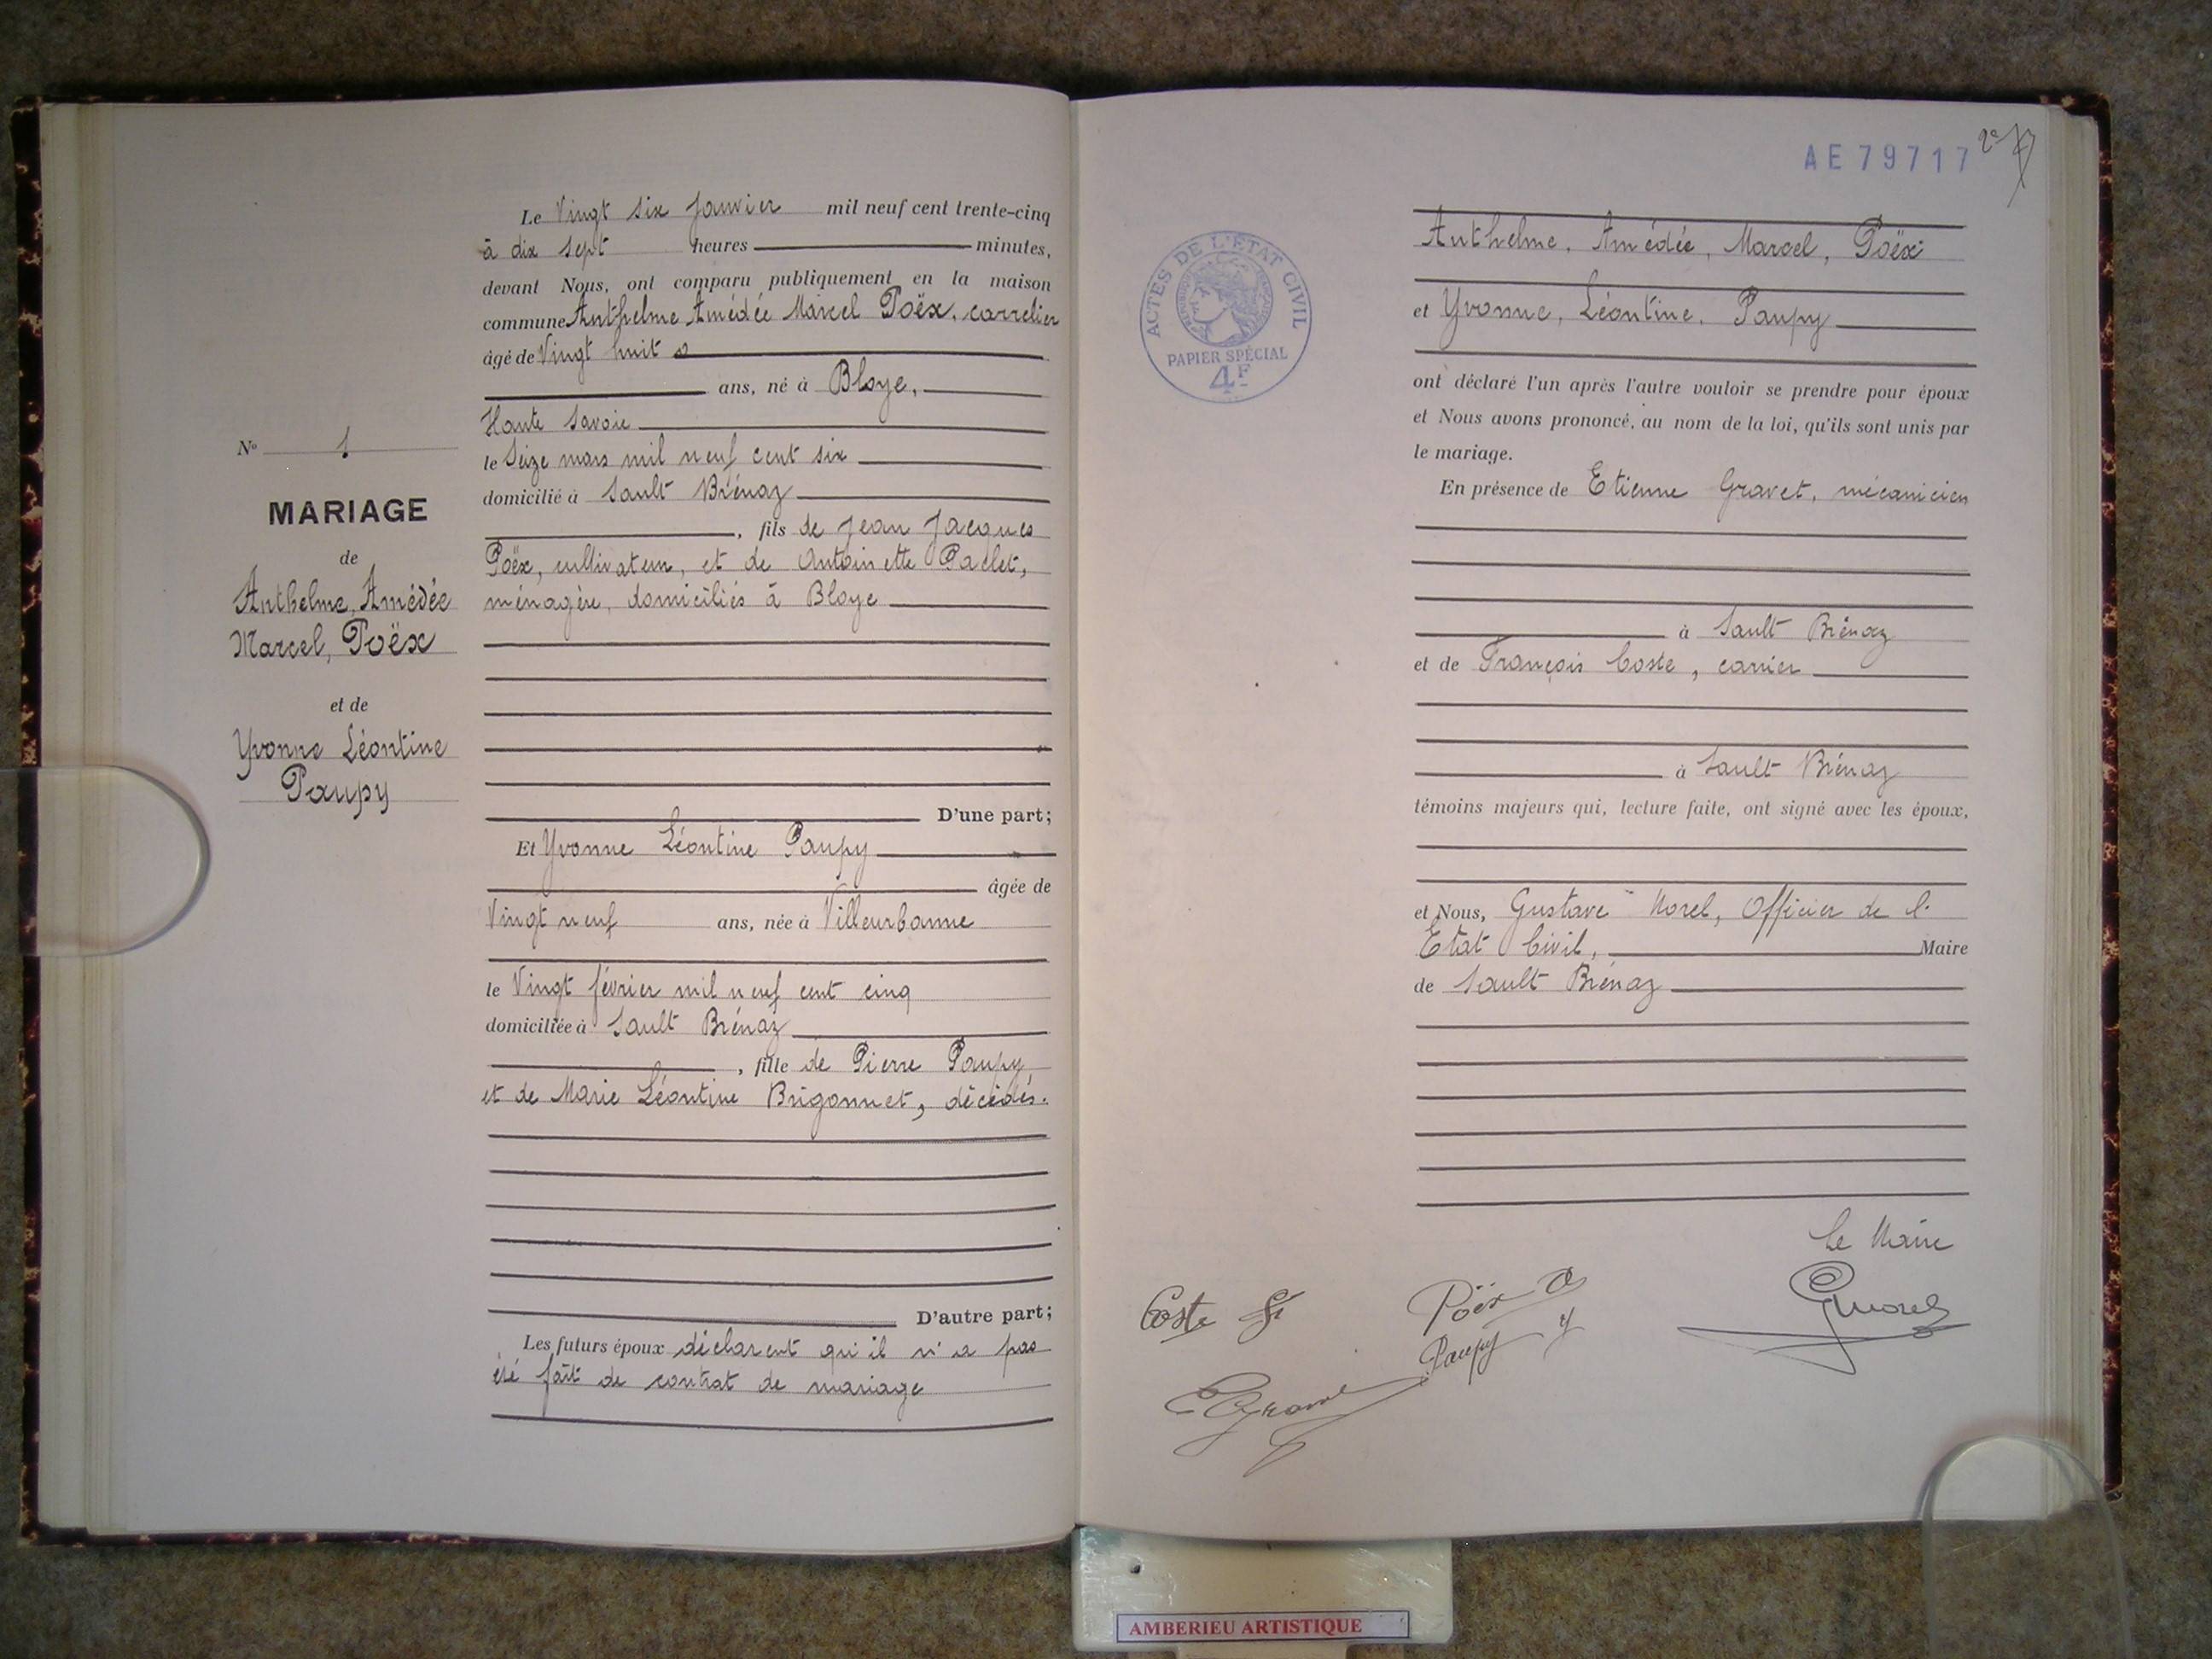 N° 1
MARIAGE
de
Anthelme, Amédée
Marcel, Poëx
et de
Yvonne Léontine
Paupy
Le Vingt six Janvier mil neuf cent trente-cinq
à dix sept heures minutes,
devant Nous, ont comparu publiquement en la maison
commune Anthelme Amédée Marcel Poëx, carrelier
âgé de Vingt huit
ans, né à Bloye,
Haute Savoie
le Seize mars mil neuf cent six
domicilié à Sault Brénaz
, fils de Jean Jacques
Poëx, cultivateur, et de Antoinette Paclet,
ménagère, domiciliés à Bloye
D'une part;
Et Yvonne Léontine Paupy
âgée de
Vingt neuf ans, née à Villeurbanne
le Vingt février mil neuf cent cinq
domiciliée à Sault Brénaz
, fille de Pierre Paupy
et de Marie Léontine Brigonnet, décédés.
D'autre part;
Les futurs époux déclarent qu'il n'a pas
été fait de contrat de mariage
AE79717
ACTES DE L'ÉTAT CIVIL
PAPIER SPÉCIAL
4F
Anthelme, Amédée, Marcel, Poëx
et Yvonne, Léontine, Paupy
ont déclaré l'un après l'autre vouloir se prendre pour époux
et Nous avons prononcé, au nom de la loi, qu'ils sont unis par
le mariage.
En présence de Etienne Gravet, mécanicien
à Sault Brénaz
et de François Coste, carrier
à Sault Brénaz
témoins majeurs qui, lecture faite, ont signé avec les époux,
et Nous, Gustave Morel, Officier de l'
Etat Civil, Maire
de Sault Brénaz
Le Maire
Coste Poëx GMorel
Paupy y
AMBERIEU ARTISTIQUE